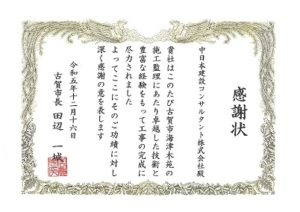 感謝状
中日本建設コンサルタント株式会社殿
貴社はこのたび古賀市海津木苑の
施工監理にあたり卓越した技術と
豊富な経験をもって工事の完成に
尽力されました
よってここにそのご功績に対し
深く感謝の意を表します
令和五年十二月十六日
古賀市長 田辺 一城